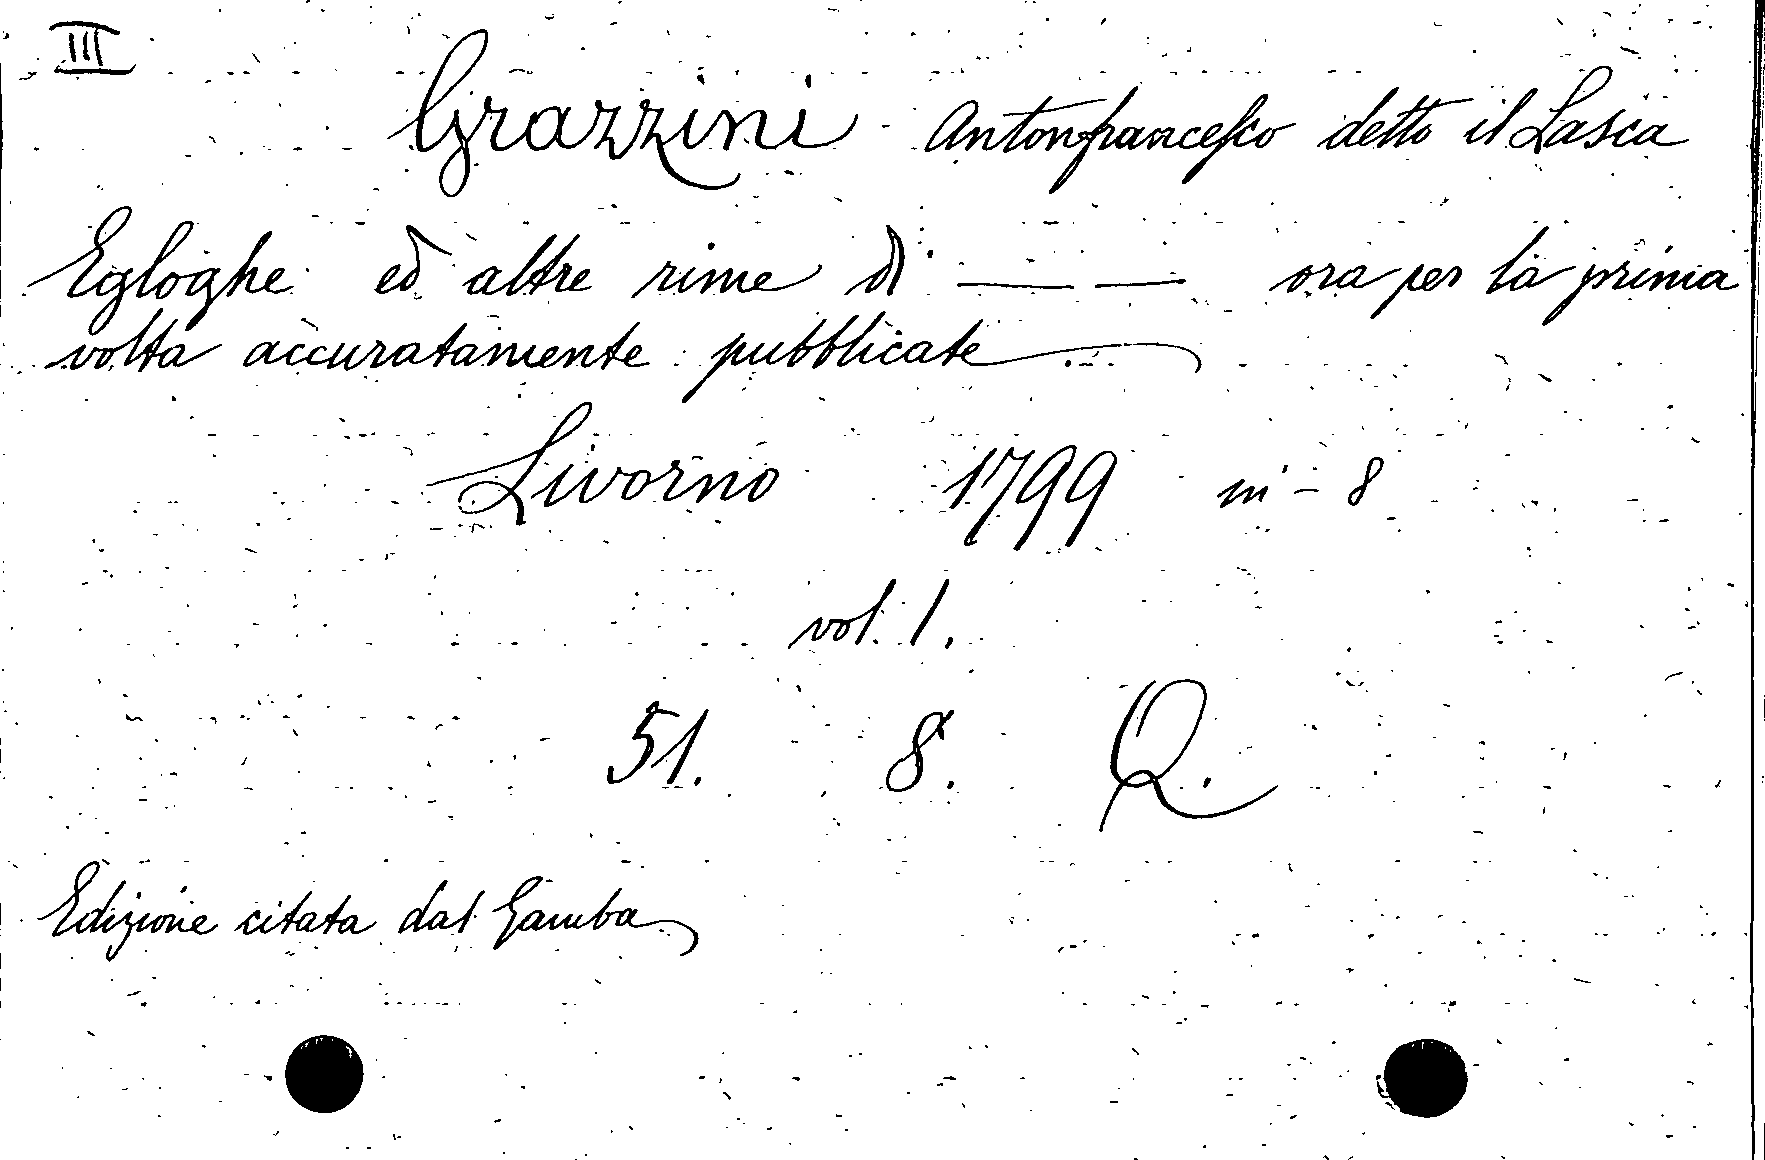 III
Grazzini Antonfrancesco detto il Lasca
Egloghe ed altre rime di — — ora per la prima
volta accuratamente pubblicate
Livorno 1799 in - 8
vol. 1.
51. 8. Q.
Edizione citata dal Gamba